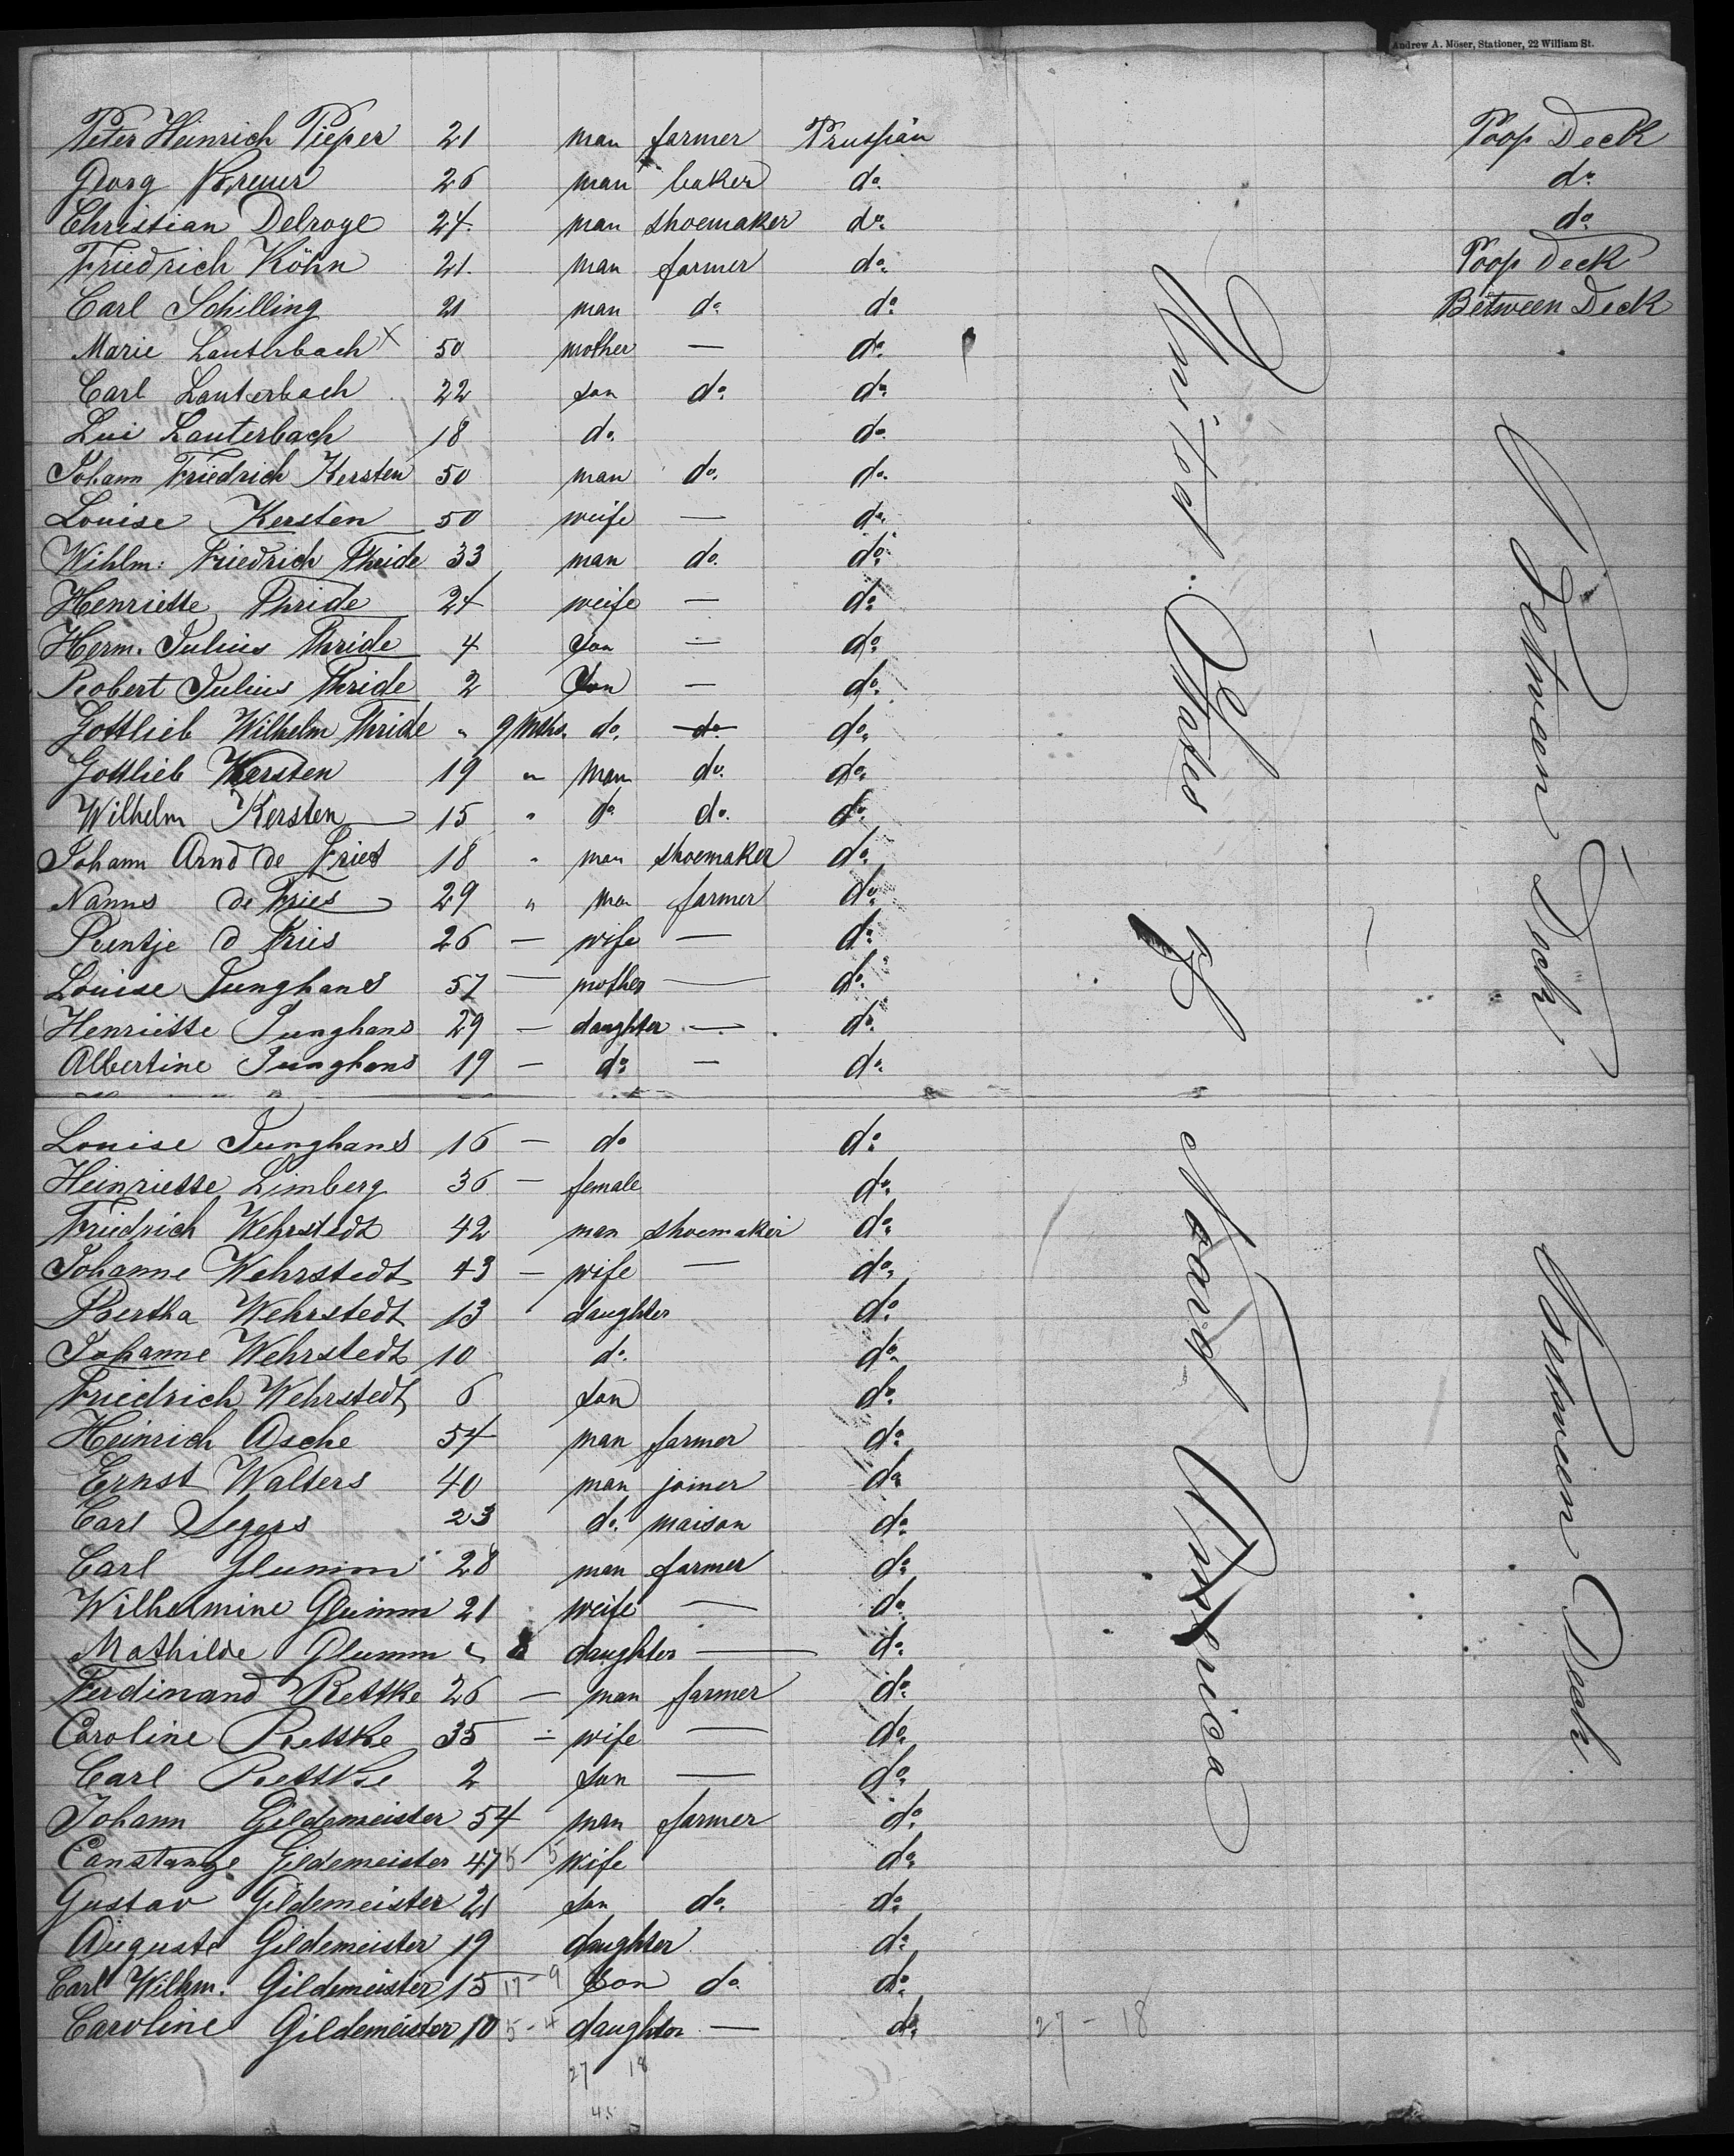 Andrew A. Möser, Stationer, 22 William St.
Peter Heinrich Pieper 21 man farmer Prussian Poop Deck
Georg 26 man baker do. do.
Christian Delroge 24 man shoemaker do. do.
Friedrich Köhn 21. man farmer do. Poop Deck
Carl Schilling 21 man do. do. Between Deck
Marie Lauterbach X 50 mother — do.
Carl Lauterbach 22 son do. do.
Lui Lauterbach 18 do. do.
Johann Friedrich Kersten 50 man do. do.
Louise Kersten 50 weife — do.
Wihlm: Friedrich Thride 33 man do. do.
Henriette Thride 24 weife — do.
Herm. Julius Thride 4 son — do.
Robert Julius Thride 2 Son — do.
Gottlieb Wilhelm Thride " 9 Mths. do. do. do.
Gottlieb Kersten 19 " man do. do.
Wilhelm Kersten 15 " do. do. do.
Johann Arnd de Fries 18 " man shoemaker do.
Nanns de Fries 29 " man farmer do.
d Fries 26 — wife — do.
Louise Junghans 57 — mother — do.
Henriette Junghans 29 — daughter — do.
Albertine Junghans 19 — do. — do.
Louise Junghans 16 — do do.
Heinriette Limberg 36 — female do.
Friedrich Wehrstedt 42 man shoemaker do.
Johanne Wehrstedt 43 — wife — do.
Bertha Wehrstedt 13 " daughter do.
Johanne Wehrstedt 10 do. do.
Friedrich Wehrstedt 6 son do.
Heinrich Asche 54 man farmer do.
Ernst Walters 40 man joiner do.
Carl Segers 23 do. maison do.
Carl Glumm 28 man farmer do.
Wilhelmine Glumm 21 weife — do.
Mathilde Glumm " 8 daughter — do.
Ferdinand Rettke 26 — man farmer do.
Caroline Rettke 35 — wife — do.
Carl Rettke 2 son — do.
Johann Gildemeister 54 man farmer do.
Constanze Gildemeister 47 5 5 wife do.
Gustav Gildemeister 21 son do. do.
Auguste Gildemeister 19 daughter do.
Carl Wilhm. Gildemeister 15 17 - 9 Son do. do.
Caroline Gildemeister 10 5 - 4 daughter — do. 27 - 18
27 18
45
United States
of
Nord America
Between Deck
Between Deck